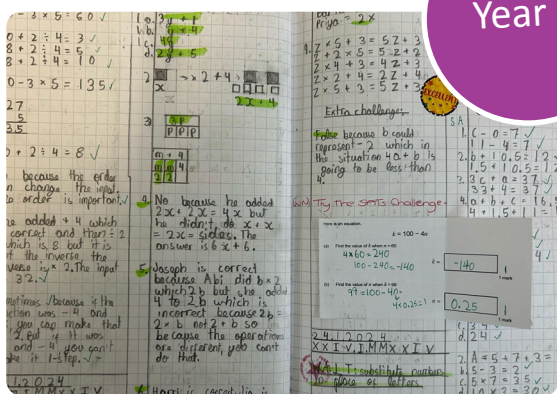 Year
- 3 × 5 = 60 ✓
0 + 2 ÷ 4 = 3 ✓
8 + 2 ÷ 4 = 5 ✓
8 + 2 ÷ 4 = 10 ✓
0 - 3 × 5 = 135 ✓
27
5
35
0 + 2 ÷ 4 = 8 ✓
because the order
n change the input.
e order is important ✓
e added + 4 which
correct and then ÷ 2
which is 8 but it is
t the inverse, the
verse is × 2. The input
32. ✓
you can make that
÷ 2. But if it was
and - 4 you can't
ke it 1-step.
1.2024
X X I V. I. M M X X I V
1a. 3y + 1
b. y = 4
c. 4y
d. 2y + 5
2 → x 2 + 4 →
x
2x + 4
3
3p
p p p
m + 4
4. No because he added
2x + 2x = 4x but
he didn't do x + x
= 2x = sides. The
answer is 6x + 6.
5. Joseph is correct
because Abi did b × 2
which 2b but she added
4 to 2b which is
incorrect because 2b =
2 × b not 2 + b so
because the operations
are different, you can't
do that.
6. Harri is correct.
Priya = 2x
2 × 5 + 3 = 5z + 3
2 + 2 × 5 = 5z + 2
z × 4 + 3 = 4z + 3
z × 2 + 4 = 2z + 4
z × 5 + 3 = 5z + 3
EXCELLENT
Extra challenge:
False because b could
represent -2 which in
the situation 4a + b is
going to be less than
4.
W.N) Try the SATs Challenge.
Here is an equation.
k = 100 - 4n
(a) Find the value of k when n = 60
4 × 60 = 240
100 - 240 = -140
k = -140
1 mark
(b) Find the value of n when k = 99
99 = 100 - 4n
4 × 0.25 = 1
n = 0.25
1 mark
24.1.2024
X X I V. I. M M X X I V
W.A.L.T: substitute numbers
in place of letters
SA
1. c - 0 = 7 ✓
11 - 4 = 7 ✓
2. b + 10.5 = 12
1.5 + 10.5 = 12
3. 3c + a = 37
33 + 4 = 37 ✓
4. a + b + c = 16.
4 + 1.5 + 1
d. 24 ✓
2. A = 5 + 7 + 3 =
b. 5 - 3 = 2 ✓
c. 5 × 7 = 35 ✓
d. 10 × 3 = 30 ✓